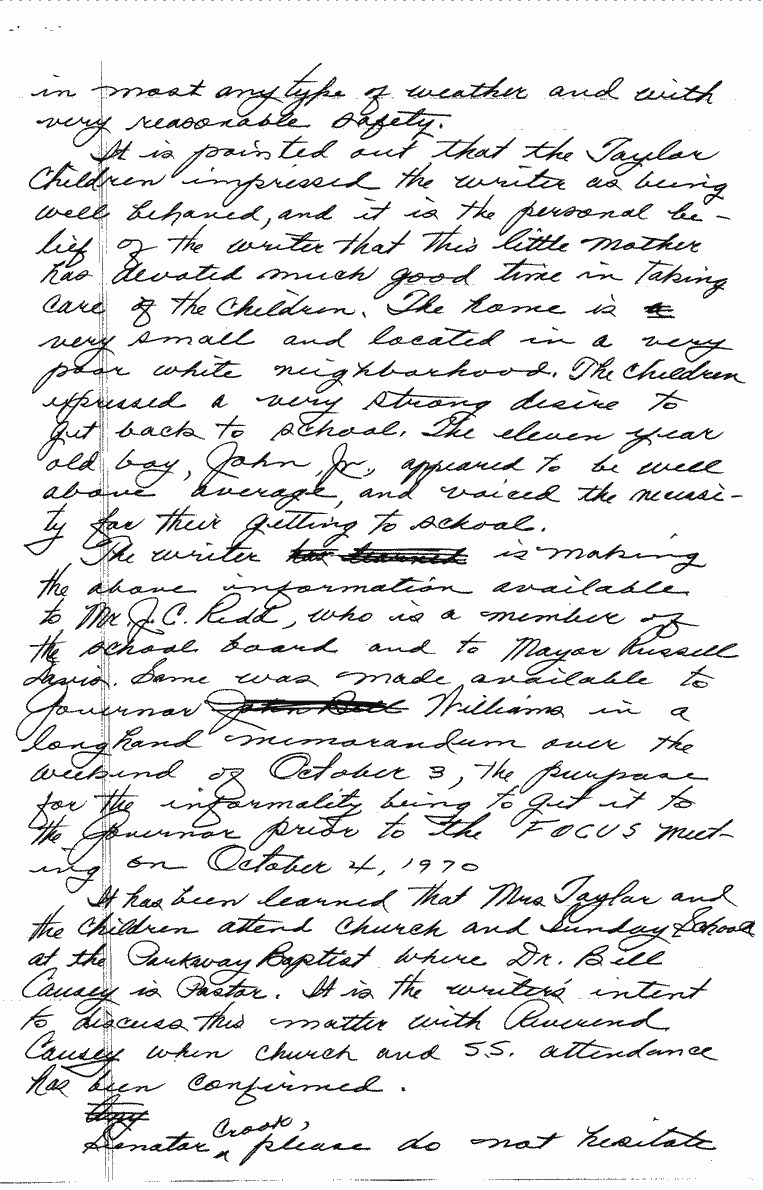 in most any type of weather and with
very reasonable safety.
It is pointed out that the Taylor
Children impressed the writer as being
well behaved, and it is the personal be-
lief of the writer that this little mother
has devoted much good time in taking
care of the children. The home is a
very small and located in a very
poor white neighborhood. The children
expressed a very strong desire to
get back to school. The eleven year
old boy, John, Jr., appeared to be well
above average, and voiced the necessi-
ty for their getting to school.
The writer has learned is making
the above information available
to Mr. J.C. Redd, who is a member of
the school board and to Mayor Russell
Davis. Same was made available to
Governor John Bell Williams in a
longhand memorandum over the
weekend of October 3, the purpose
for the informality being to get it to
the Governor prior to the FOCUS meet-
ing on October 4, 1970
It has been learned that Mrs Taylor and
the children attend church and Sunday School
at the Parkway Baptist where Dr. Bill
Causey is Pastor. It is the writer's intent
to discuss this matter with Reverend
Causey when church and S.S. attendance
has been confirmed.
Any
Senator Crook, please do not hesitate